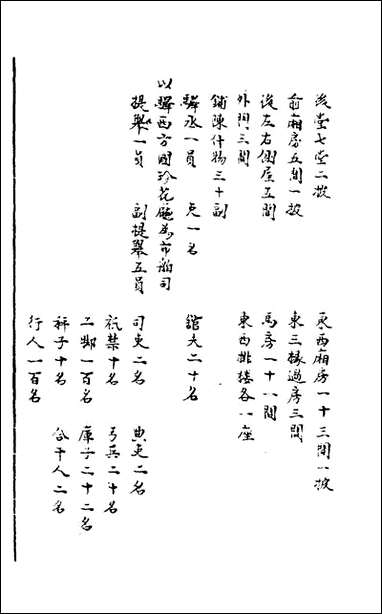 後堂七堂二披 東西廂房一十三間一披
前廂房五間一披 東三椽過房三間
後左右側屋五間 馬房一十一間
外門三間 東西挑樓各一座
鋪陳什物三十副
驛丞一員 吏一名 館夫二十名
以驛西方國珍花廳為市舶司
提舉一員 副提舉五員 司吏二名 典吏二名
祇禁十名 弓兵二十名
工腳一百名 庫子二十二名
秤子十名 合干人二名
行人一百名